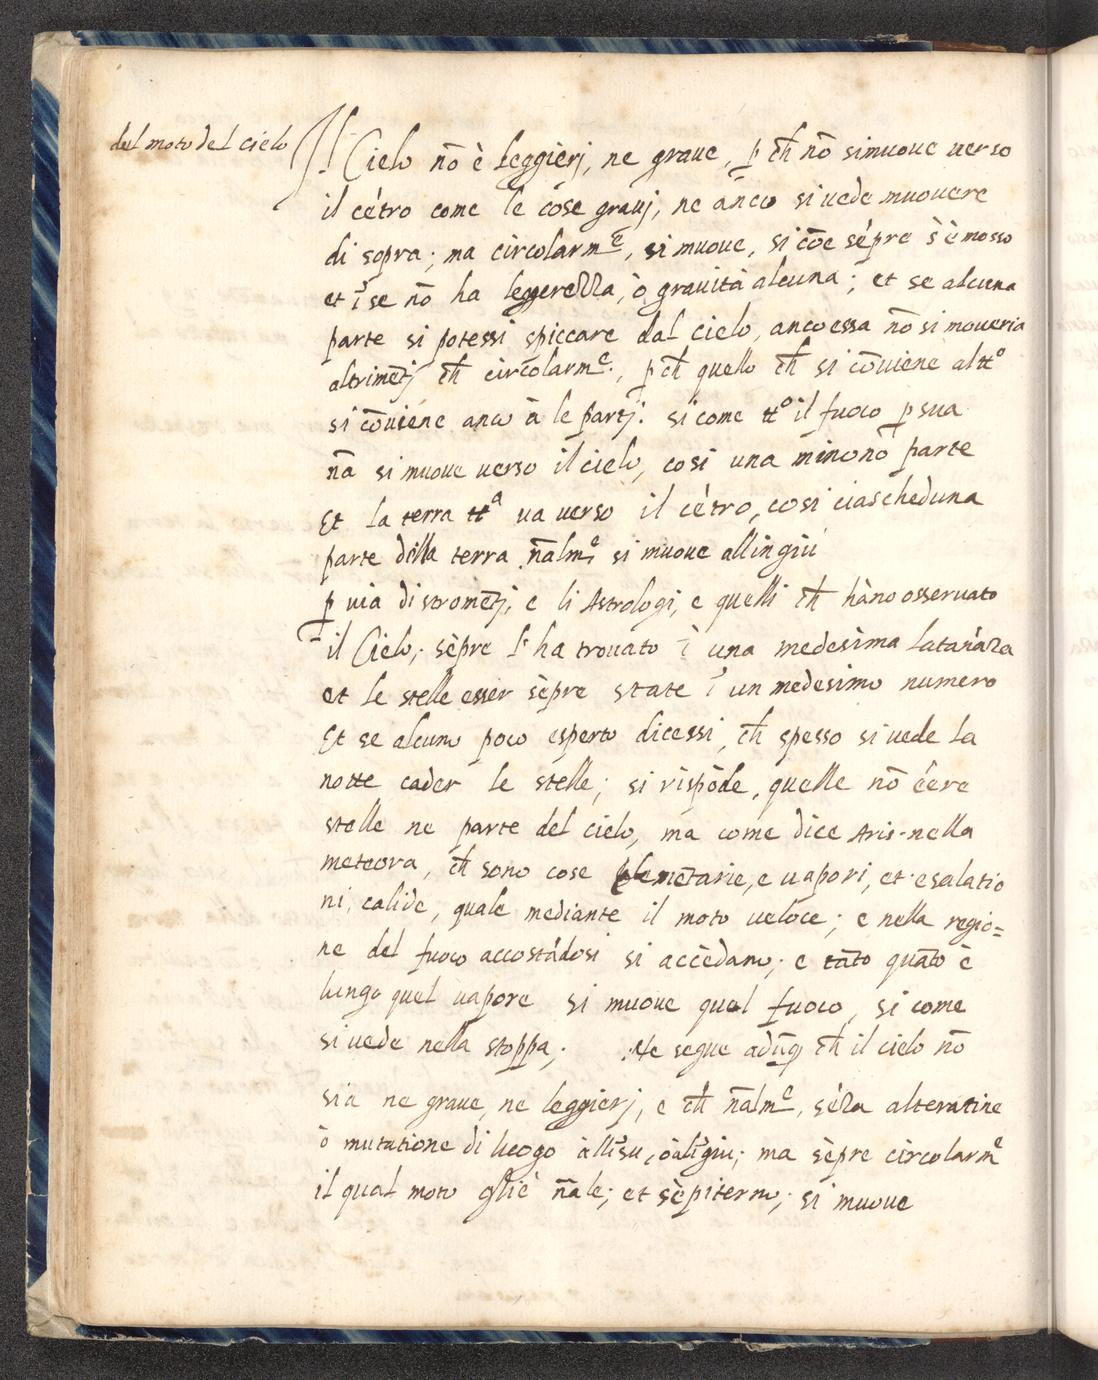 del moto del cielo
Il Cielo nō è leggierj, ne graue, p ch̄ nō simuoue uerso
il cẽtro come le cose grauj, ne anco si uede muouere
di sopra; ma circolarm.e, si muoue, si cōe sẽpre s'è mosso
et ĩ se nō ha leggerezza, ò grauità alcuna; et se alcuna
parte si potessi spiccare dal cielo, anco essa nō si moueria
altrimẽtj ch̄ circolarm.e, p ch̄ quello ch̄ si cōuiene al tt.o
si cōuiene anco à le partj: si come tt.o il fuoco p sua
nā si muoue uerso il cielo, cosi una minonō parte
Et la terra tt.a ua uerso il cẽtro, cosi ciascheduna
parte della terra n̄alm.e si muoue allingiu
p uia di stromẽtj, e li Astrologi, e quelli ch̄ hàno osseruato
il Cielo, sẽpre l'ha trouato ĩ una medesima
et le stelle esser sẽpre state ĩ un medesimo numero
Et se alcuno poco esperto dicessi, ch̄ spesso si uede la
notte cader le stelle; si rispōde, quelle nō éere
stelle ne parte del cielo, ma come dice Aris. nella
meteora, ch̄ sono cose elemẽtarie, e uapori, et esalatio
ni, calide, quale mediante il moto ueloce; e nella regio=
ne del fuoco accostãdosi si accẽdano; e tãto quãto è
lungo quel uapore si muoue quel fuoco, si come
si uede nella stoppa; Ne segue adūq ch̄ il cielo nō
sia ne graue, ne leggierj, e ch̄ n̄alm.e, sẽza alteratine
ò mutatione di luogo àllĩsu, ò alĩgiu; ma sẽpre circolarm.e
il qual moto gliè n̄ale; et sẽpiterno; si muoue